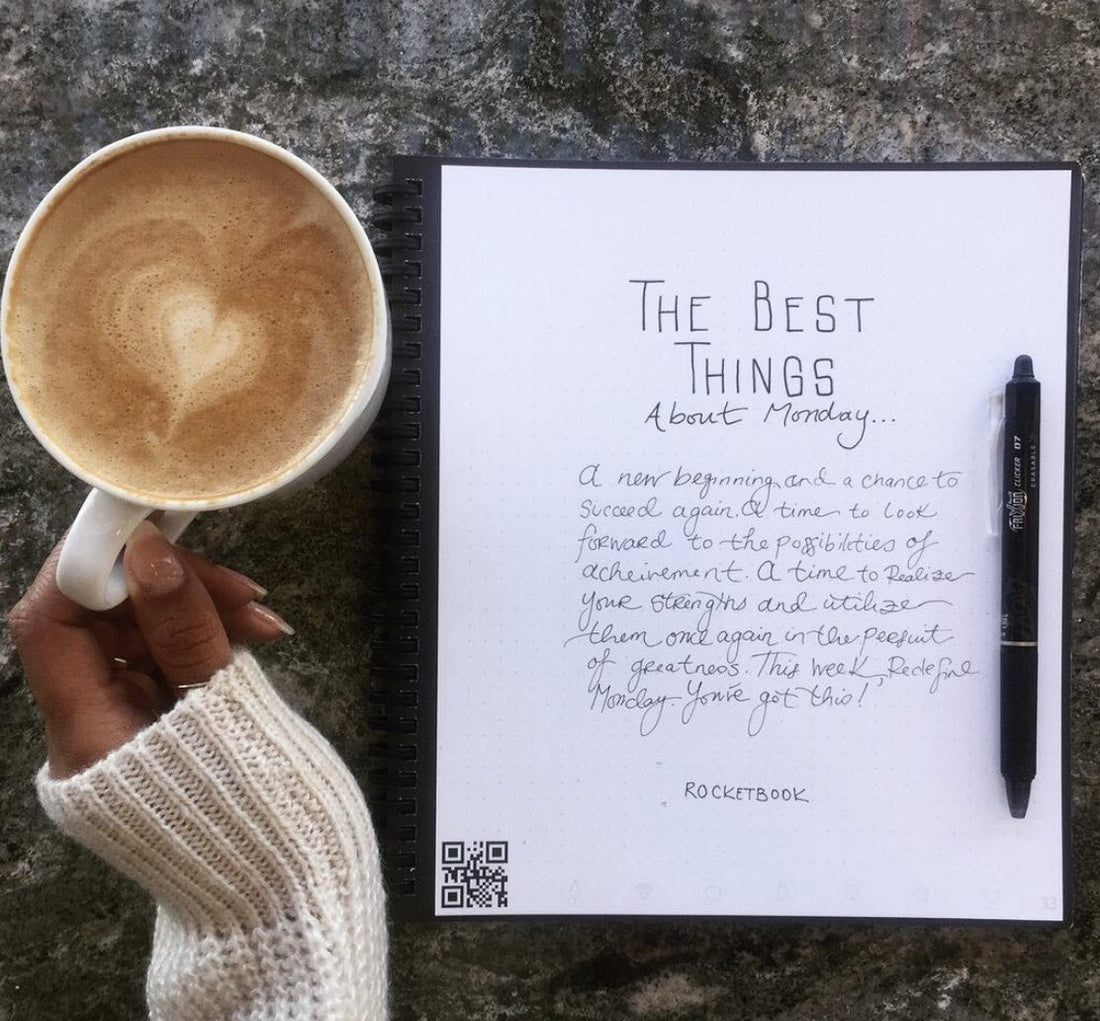 THE BEST
THINGS
About Monday...
A new beginning and a chance to
succeed again. A time to look
forward to the possibilities of
acheivement. A time to Realize
your strengths and utilize
them once again in the persuit
of greatness. This week, Redefine
Monday. You've got this!
ROCKETBOOK
33
FRIXION CLICKER 07
ERASABLE